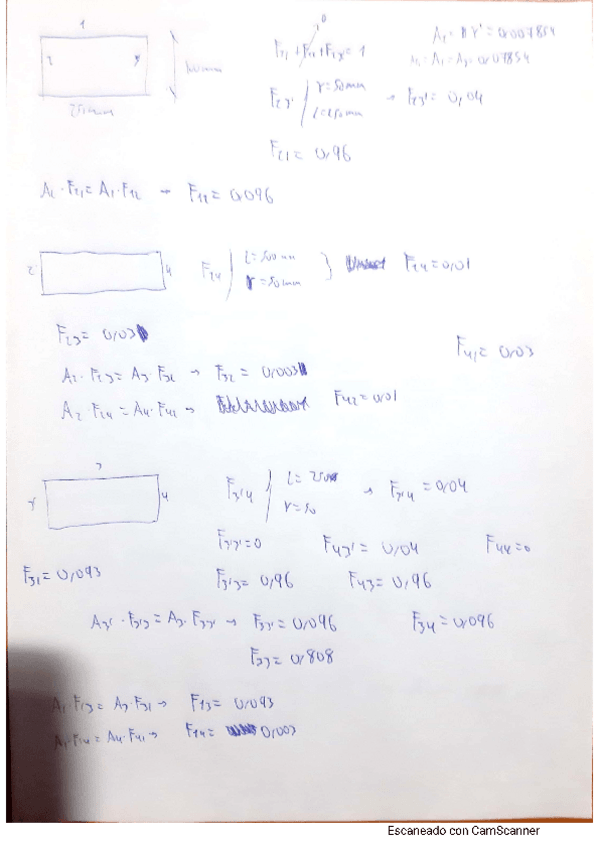 1
2
3'
100mm
250mm
F21 + F22 + F23' = 1
0
A2 = πr² = 0,007854
A1 = A3 = 0,07854
F23' / r = 50mm
l = 250mm → F23' = 0,04
F21 = 0,96
A2 · F21 = A1 · F12 → F12 = 0,096
2
4
F24 / l = 500mm
r = 50mm } F24 = 0,01
F23 = 0,03
F41 = 0,03
A2 · F23 = A3 · F32 → F32 = 0,003
A2 · F24 = A4 · F42 → F42 = 0,01
3
3'
4
F3'4 / l = 250
r = 50 → F3'4 = 0,04
F3'3' = 0 F43' = 0,04 F44 = 0
F31 = 0,093
F3'3 = 0,96 F43 = 0,96
A3' · F3'3 = A3 · F33' → F33' = 0,096 F34 = 0,096
F33 = 0,808
A1 · F13 = A3 · F31 → F13 = 0,093
A1 · F14 = A4 · F41 → F14 = 0,003
Escaneado con CamScanner